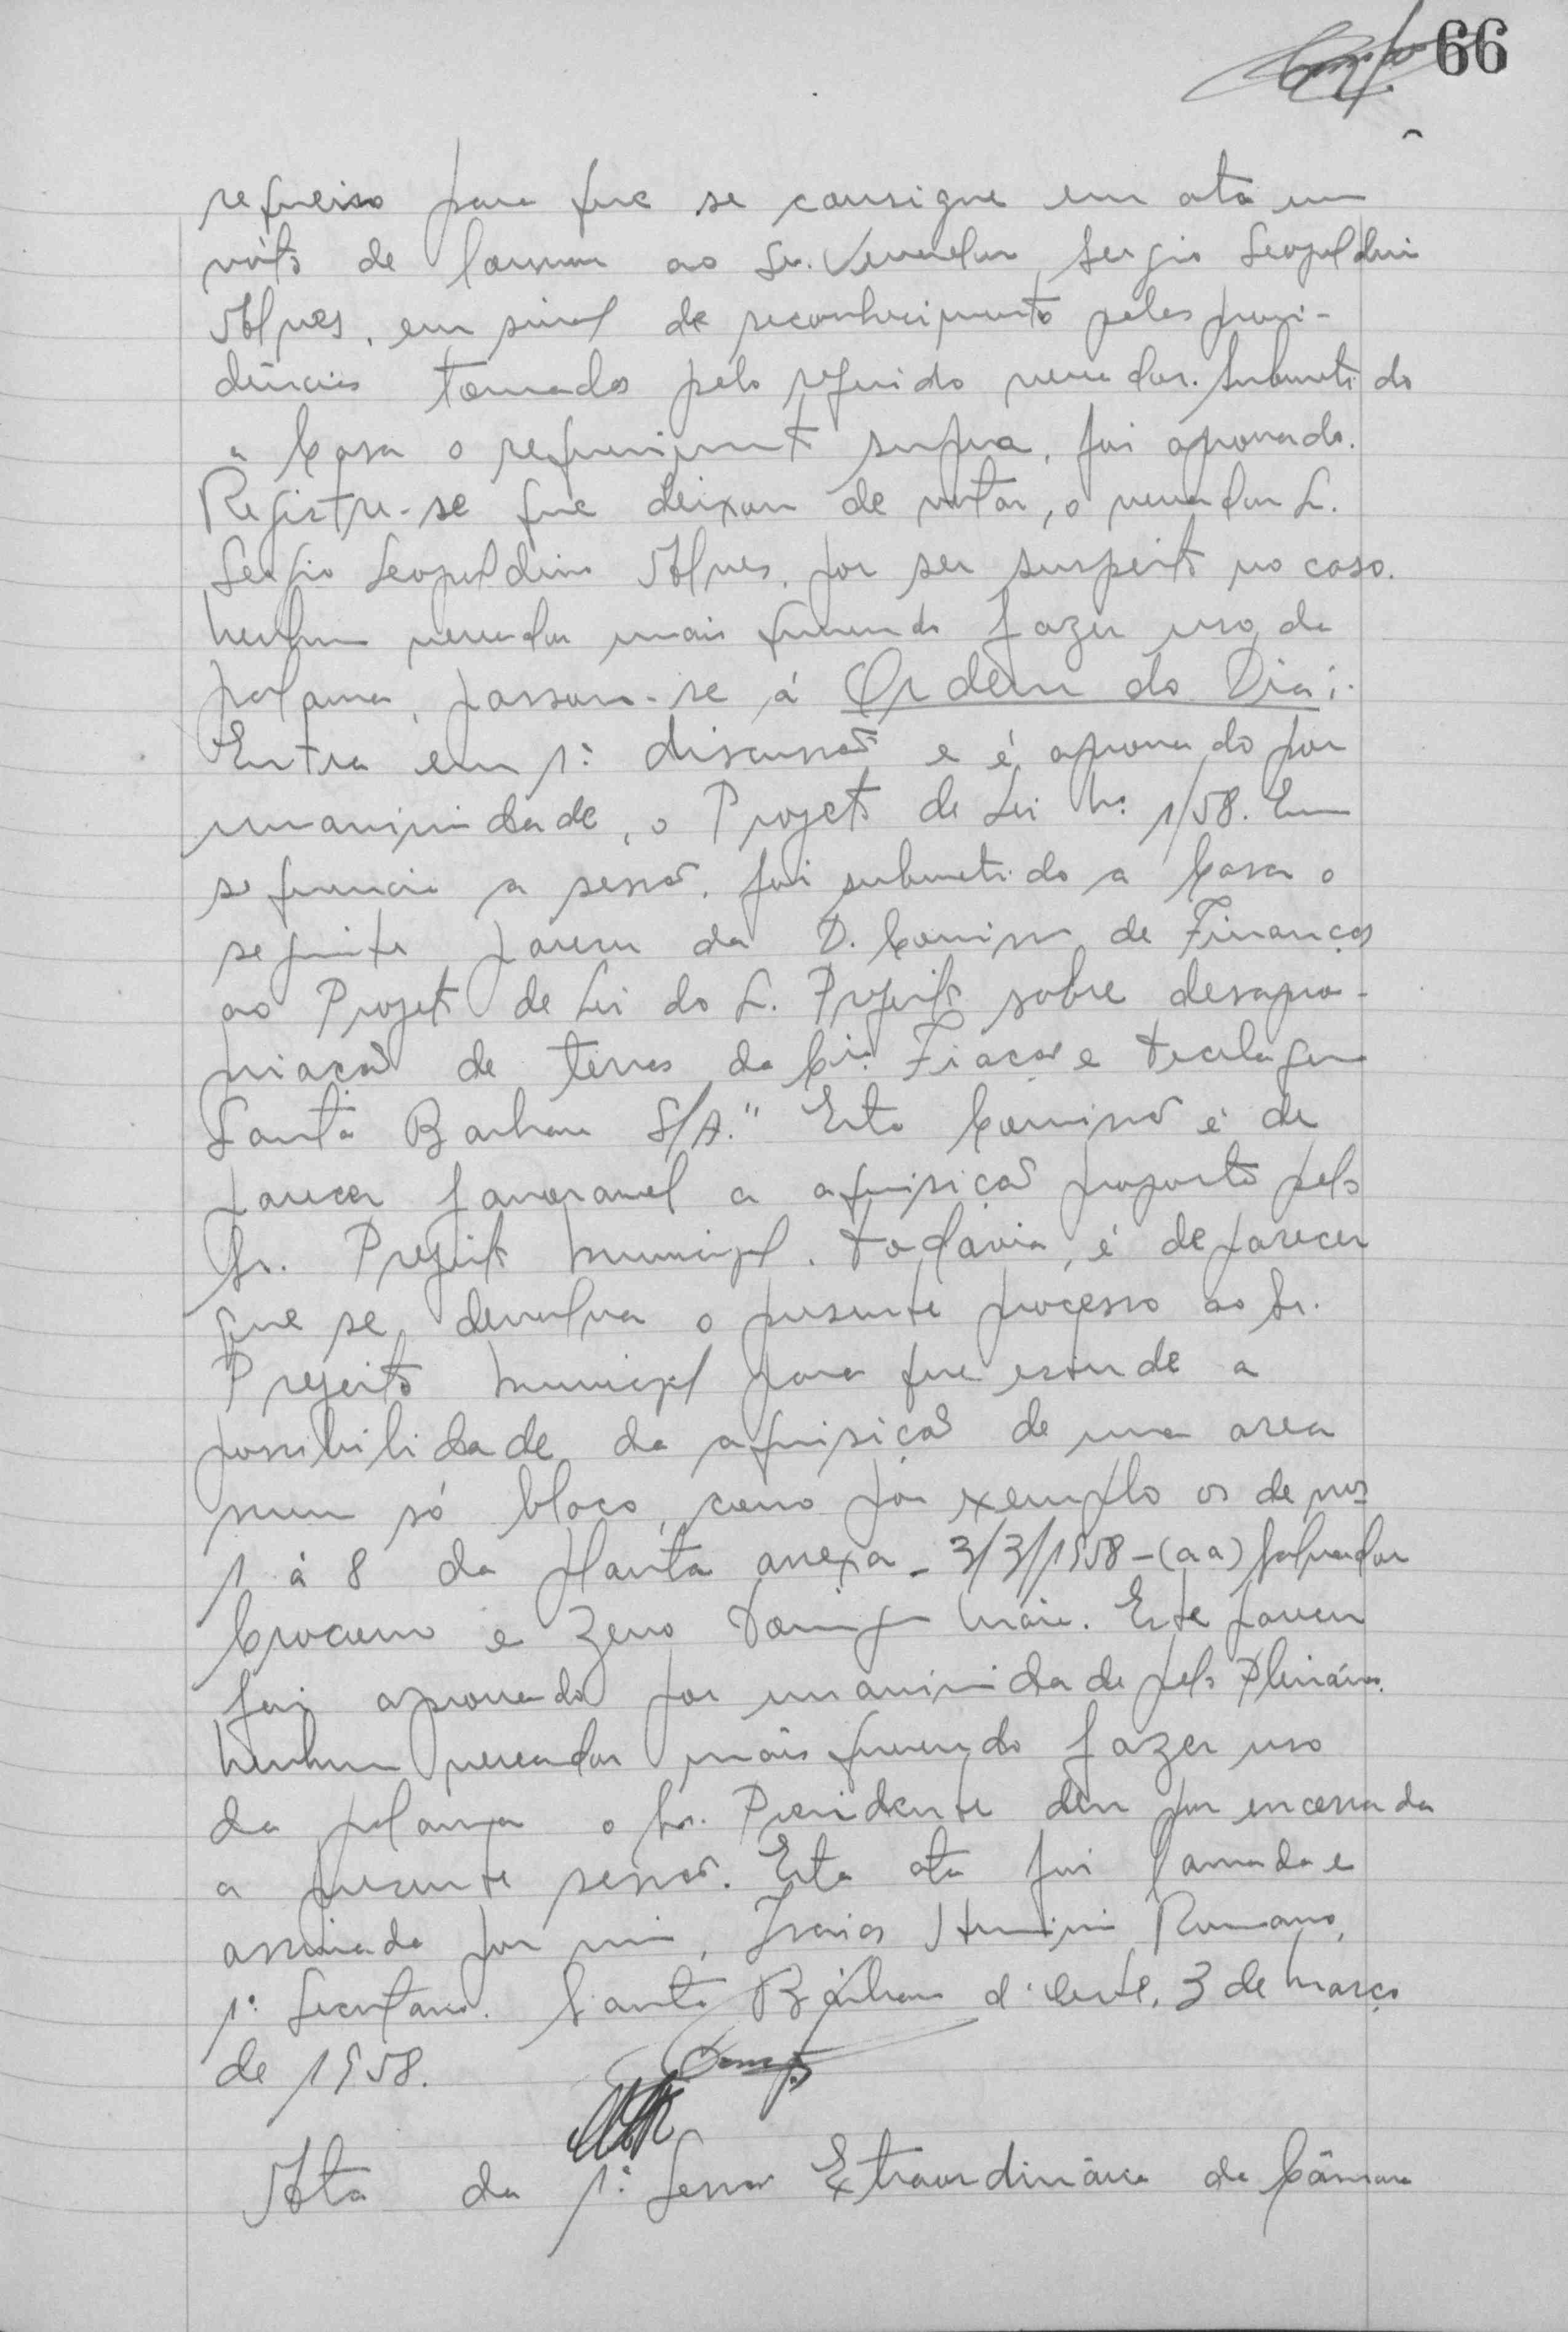 66
requeiro para que se consigne em ata um
vóto de louvor ao Sr. Vereador Sergio Leopoldino
Alves, em sinal de reconhecimento pelas provi-
dências tomadas pelo referido vereador. Submetido
a Casa o requerimento supra, foi aprovado.
Registre-se que deixou de votar, o vereador S.
Sergio Leopoldino Alves, por ser suspeito no caso.
Nenhum vereador mais querendo fazer uso da
palavra, passou-se á Ordem do Dia:-
Entra em 1ª discussão e é aprovado por
unanimidade, o Projeto de Lei Nº 1/58. Em
sequencia a sessão, foi submetido a Casa o
seguinte parecer da D. Comissão de Finanças
ao Projeto de Lei do S. Prefeito sobre desapro-
priação de terras da Cia. Fiação e Tecelagem
Santa Barbara S/A." Esta Comissão é de
parecer favoravel a aquisição proposta pelo
Sr. Prefeito Municipal. Todavia, é de parecer
que se devolva o presente processo ao Sr.
Prefeito Municipal para que estude a
possibilidade da aquisição de uma area
num só bloco, como por exemplo os de nos
1 á 8 da planta anexa - 3/3/1958 - (aa) Salvador
e Zeno Maia. Este parecer
foi aprovado por unanimidade pelo Plenário.
Nenhum vereador mais querendo fazer uso
da palavra o Sr. Presidente deu por encerrada
a presente sessão. Esta ata foi lavrada e
assinada por mim, Isaias Romano,
1º Secretario. Santa Bárbara d'Oeste, 3 de Março
de 1958.
Ata da 1ª Sessão Extraordinária da Câmara